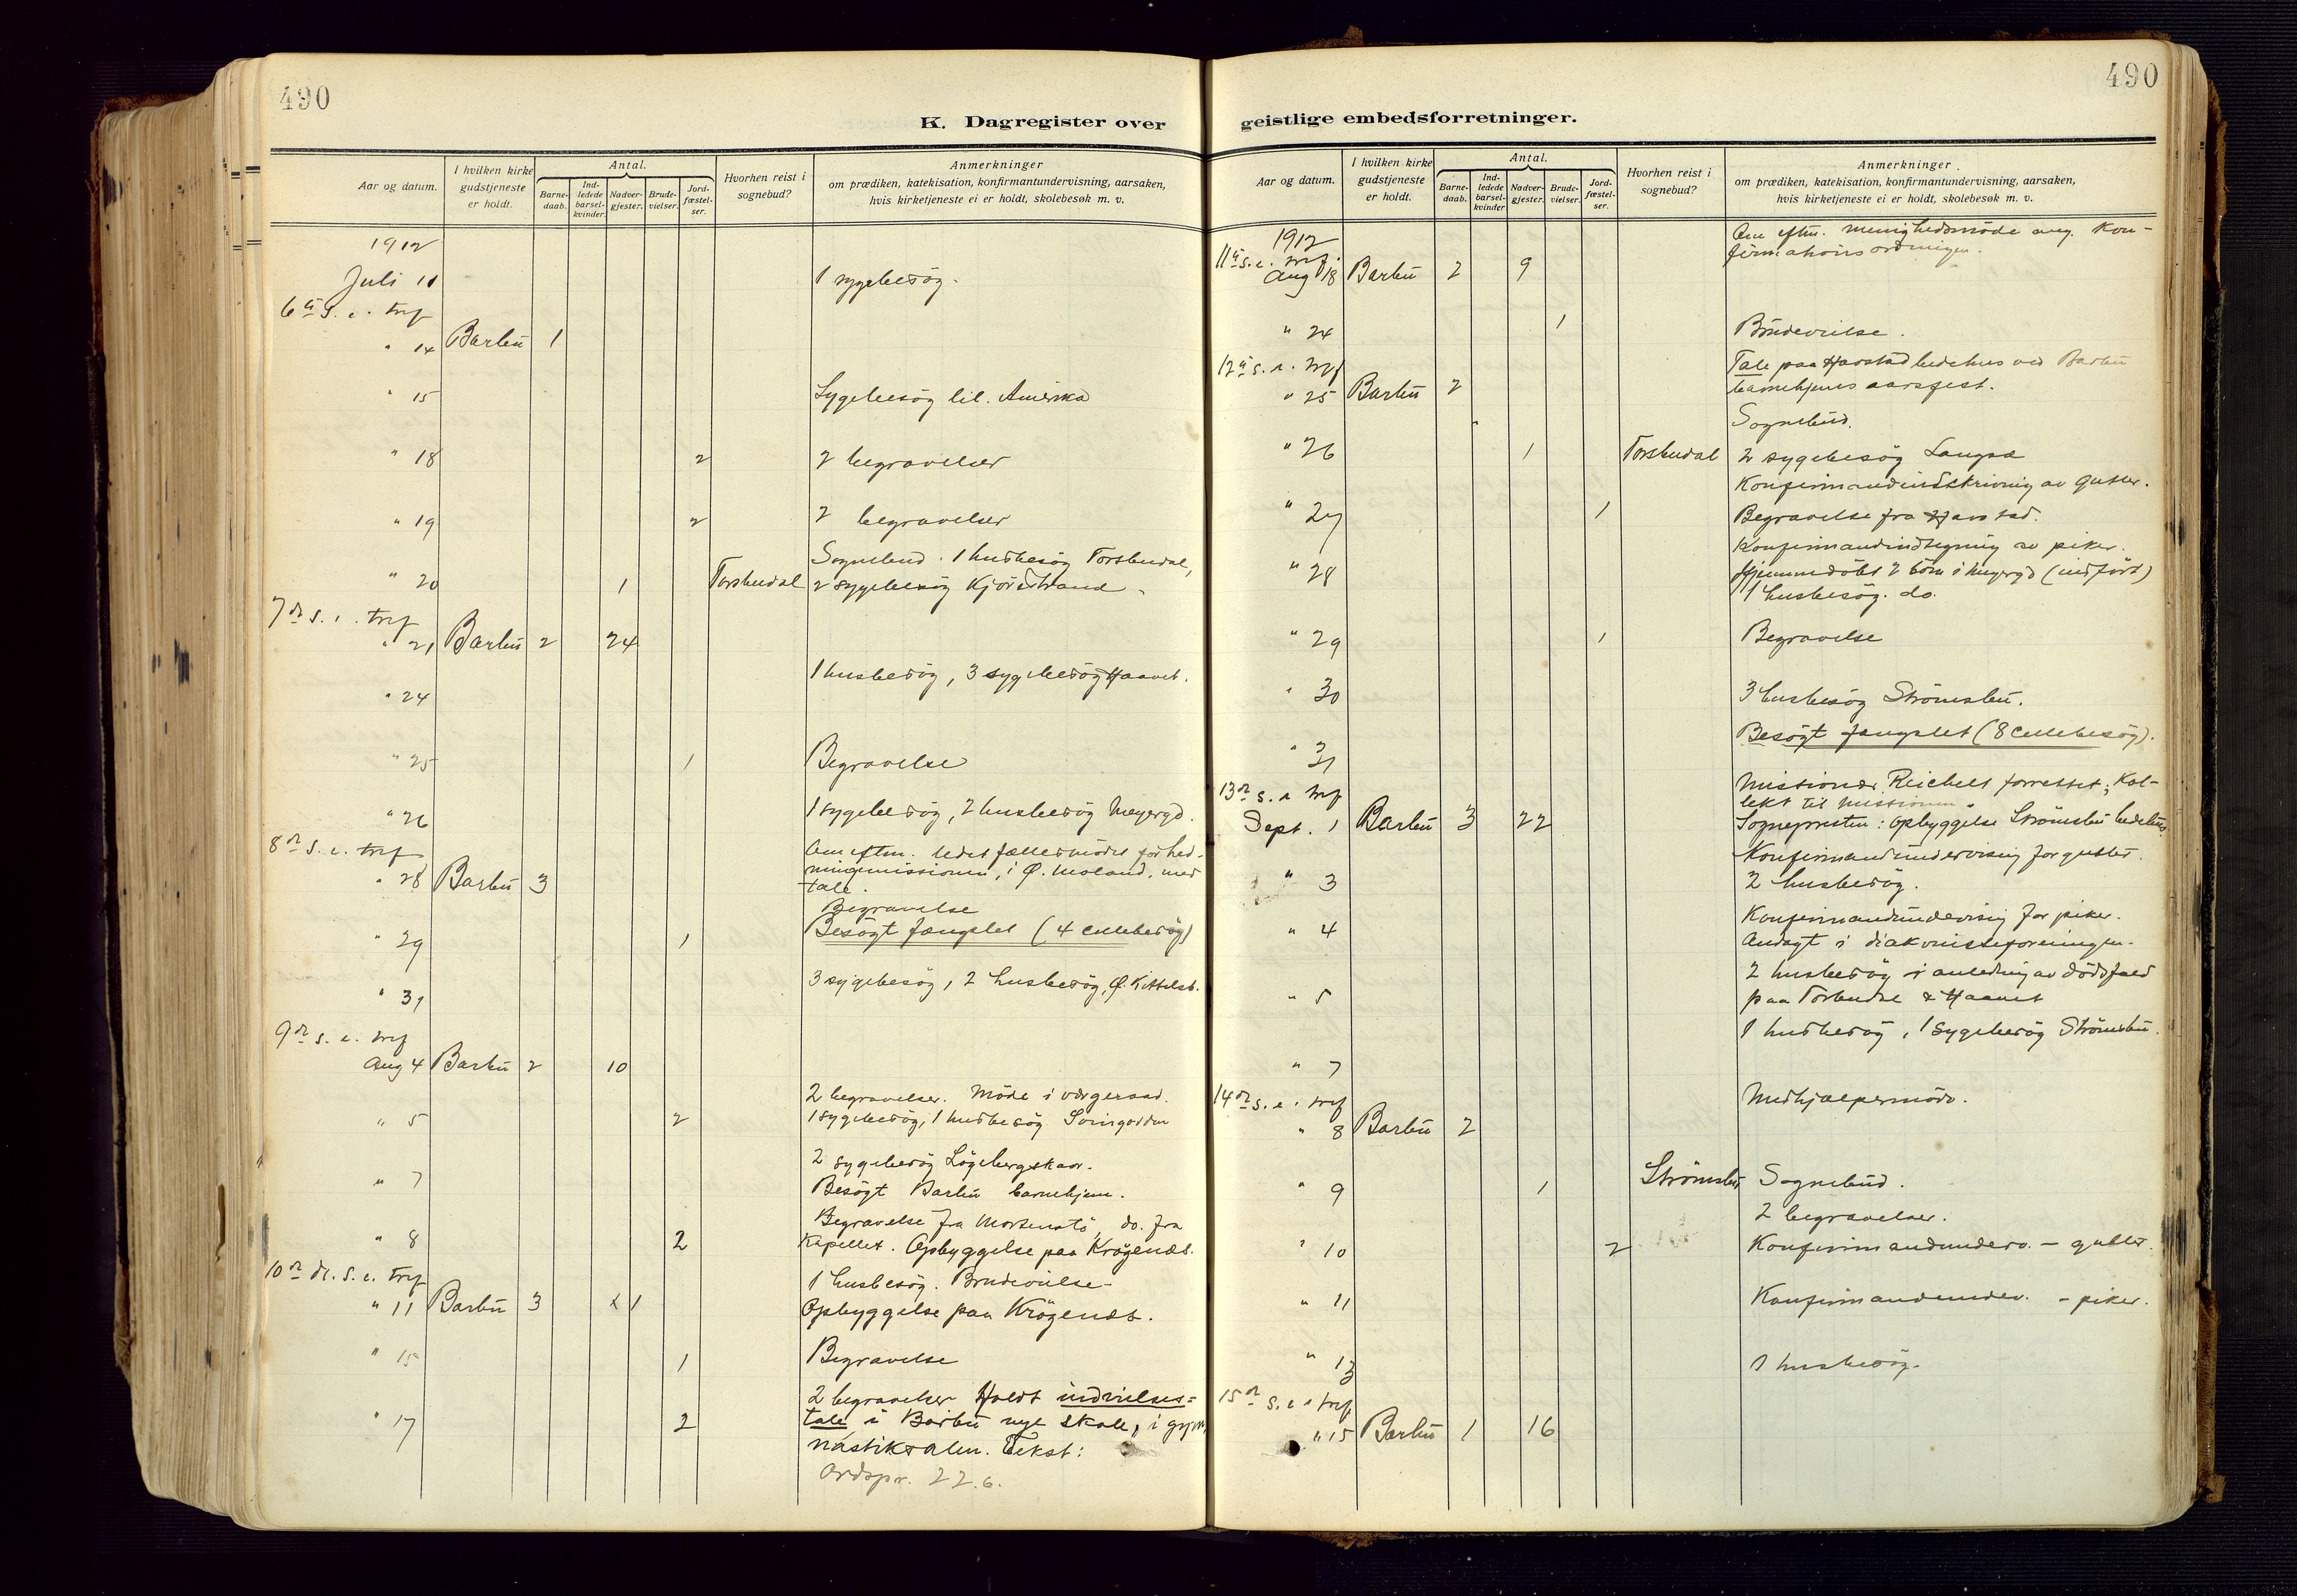 490
K. Dagregister over
Aar og datum.
I hvilken kirke gudstjeneste er holdt.
Antal.
Barne-daab.
Ind-ledede barsel-kvinder
Nadver-gjester.
Brude-vielser.
Jord-fæstel-ser.
Hvorhen reist i sognebud?
Anmerkninger
om prædiken, katekisation, konfirmantundervisning, aarsaken,
hvis kirketjeneste ei er holdt, skolebesøk m. v.
1912
Juli 11 1 sygebesög.
6te S. e. tref
" 14 Barbu 1
" 15 Sygebesög til Amerika
" 18 2 2 begravelser
" 19 2 2 begravelser
Sognebud. 1 husbesög Torsbudal,
" 20 1 Torsbudal 2 sygebesög Kjörstrand
7de s. e. tref
" 21 Barbu 2 24
1 husbesög, 3 sygebesög Haavet.
" 24
" 25 1 Begravelse
" 26 1 sygebesög, 2 husbesög Meyergd.
8de S. e. tref
Om eftm. ledet fællesmödet for hed-
" 28 Barbu 3 ningemissionen, i Ø. Moland, med
tale.
Begravelse
" 29 1 Besögt fængslet (4 cellebesög)
" 31 3 sygebesög, 2 husbesög, Ø. Kittelsb.
9de s. e. tref
Aug 4 Barbu 2 10
2 begravelser. Möde i vergeraad.
" 5 2 1 sygebesög, 1 husbesög
2 sygebesög
" 7 Besögt Barbu barnehjem.
Begravelse fra Mortenstö, do. fra
" 8 2 Kapellet. Opbyggelse paa Krögenæs.
10de s. e. tref
1 husbesög. Brudevielse
" 11 Barbu 3 1 Opbyggelse paa Krögenæs.
" 15 1 Begravelse
2 begravelser Holdt indvielses-
" 17 2 tale i Barbu nye skole, i gym
nastiksalen. Tekst:
Ordspr. 22.6.
490
geistlige embedsforretninger.
Aar og datum.
I hvilken kirke gudstjeneste er holdt.
Antal.
Barne-daab.
Ind-ledede barsel-kvinder
Nadver-gjester.
Brude-vielser.
Jord-fæstel-ser.
Hvorhen reist i sognebud?
Anmerkninger
om prædiken, katekisation, konfirmantundervisning, aarsaken,
hvis kirketjeneste ei er holdt, skolebesøk m. v.
1912
Om eftm. menighedsmöde ang. Kon-
11te s. e. tref. firmationsordningen.
Aug 18 Barbu 2 9
" 24 1 Brudevielse.
12te s. e. tref
Tale paa Harstad bedehus ved Barbu
" 25 Barbu 2 barnehjems aarsfest.
Sognebud.
" 26 1 Torsbudal 2 sygebesög Langsæ
Konfirmandindskrivning av gutter.
" 27 1 Begravelse fra Harstad.
Konfirmandindtegning av piker.
" 28 Hjemmedöbt 2 börn i Meyergd (indfört)
1 husbesög. do.
" 29 1 Begravelse
" 30 3 husbesög Strömsbu.
" 31 Besögt fængslet (8 cellebesög).
13de s. e. tref
Missionær Reichelt forrettet; Kol-
lekt til missionen.
Sept. 1 Barbu 3 22 Sognepresten: opbyggelse Strömsbu bedehus.
Konfirmandundervisng for gutter.
" 3 2 husbesög.
Konfirmandundervisng for piker.
" 4 Andagt i diakonisseforeningen.
2 husbesög i anledning av dödsfald
" 5 paa Torbudal & Haavet
1 husbesög, 1 sygebesög Strömsbu.
" 7
14de s. e. tref
Medhjælpermöde.
" 8 Barbu 2
" 9 1 Strömsbu Sognebud.
2 begravelser.
" 10 2 Konfirmandunderv. – gutter.
" 11 Konfirmandunderv. – piker.
" 13 1 husbesög.
15de s. e. tref
" 15 Barbu 1 16